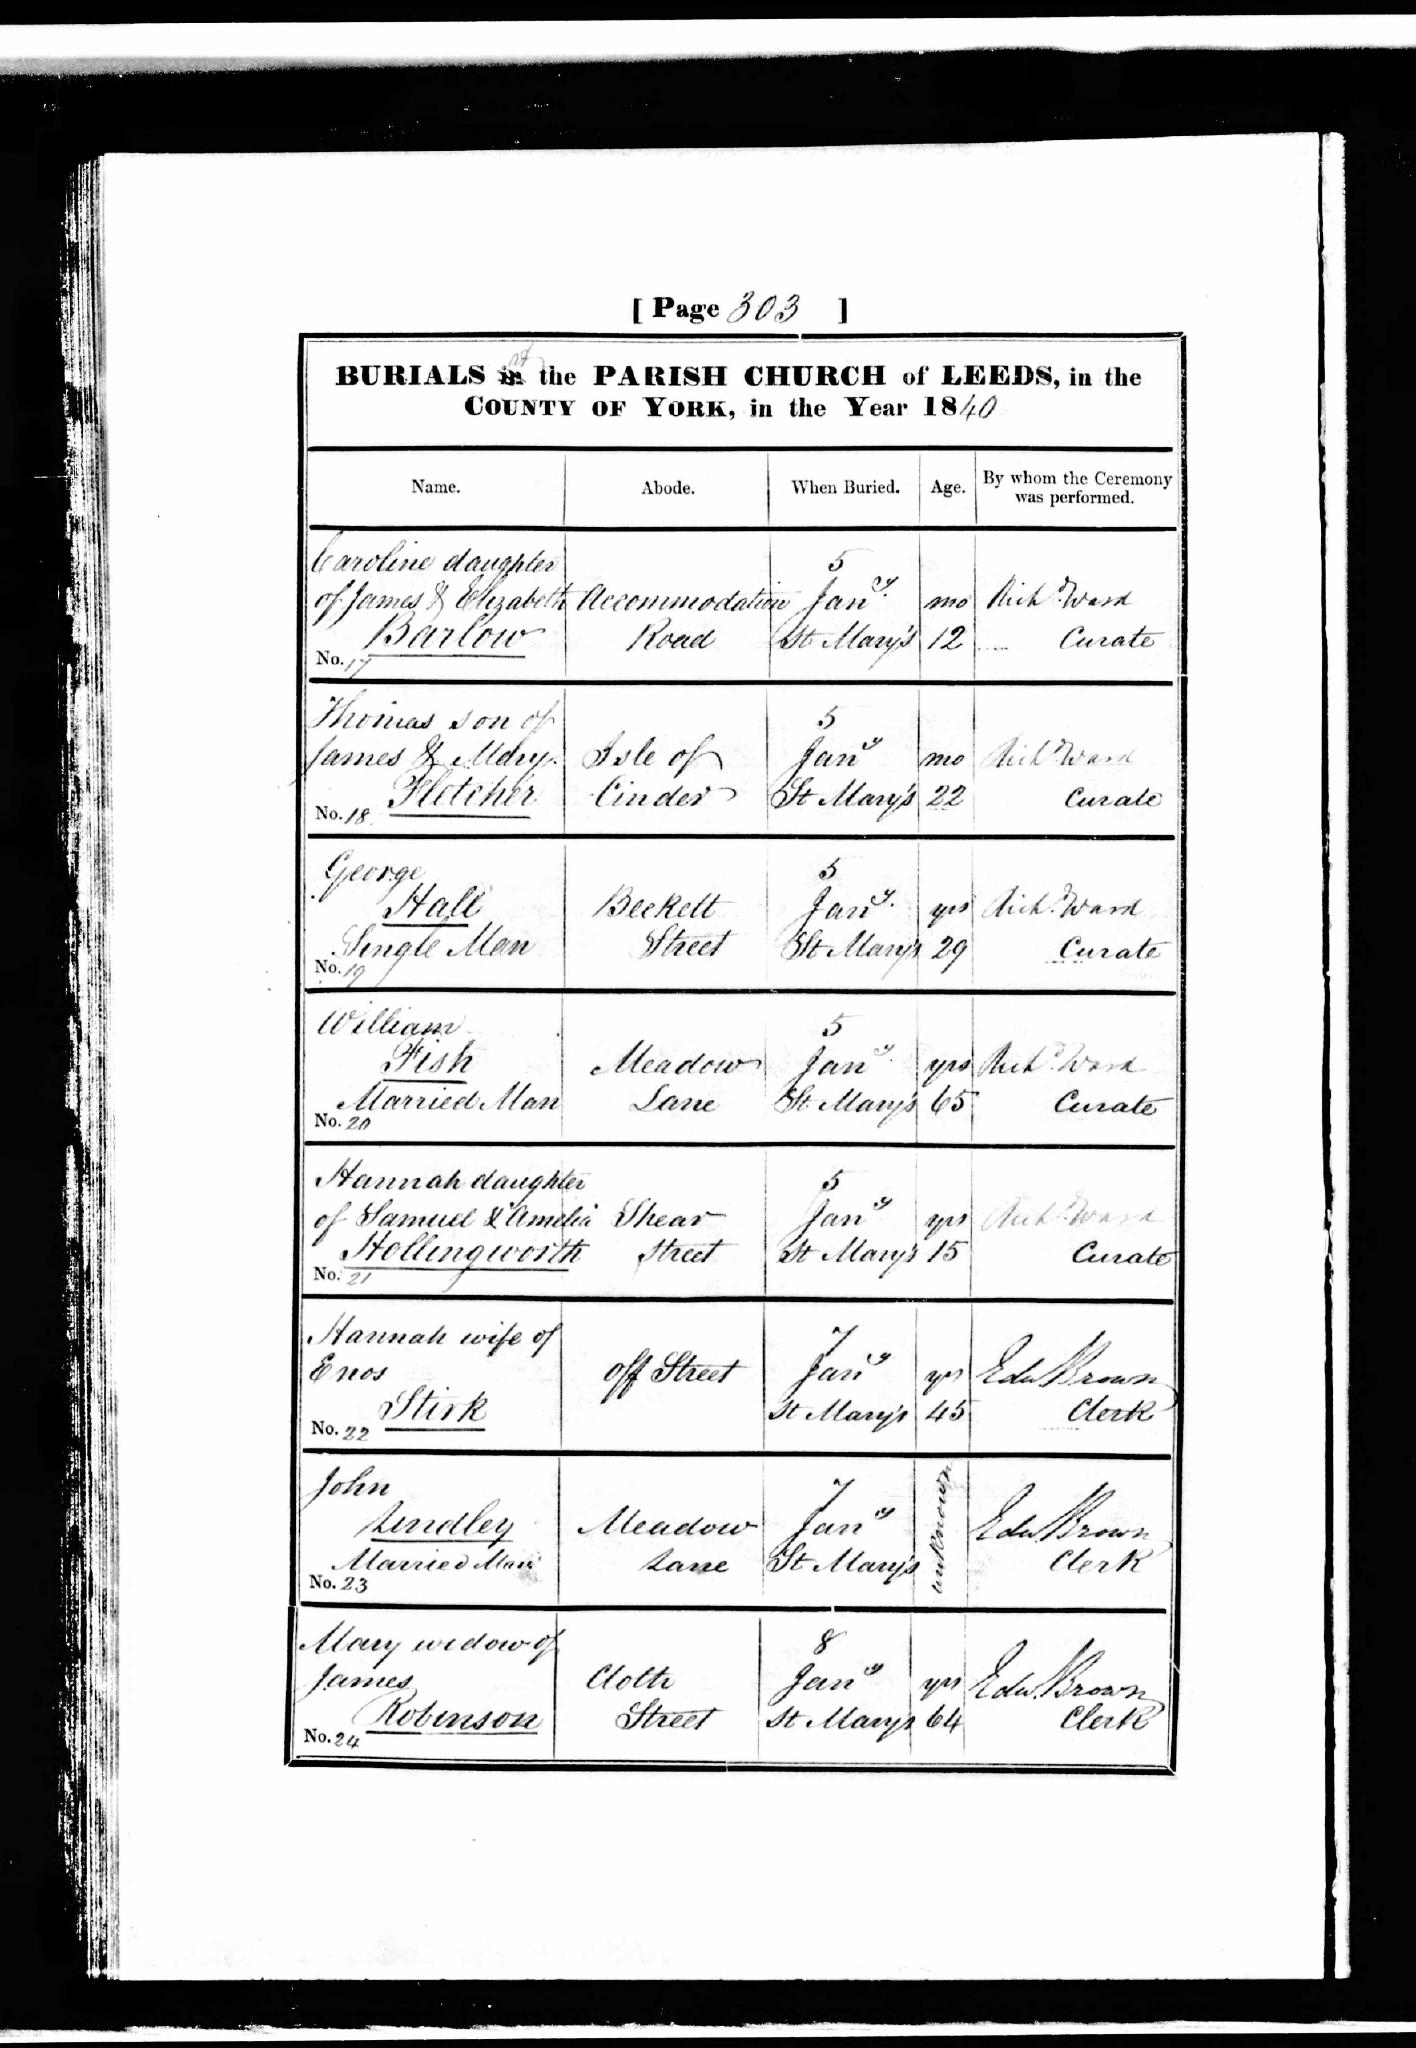 [ Page 303 ]
BURIALS in the PARISH CHURCH of LEEDS, in the
COUNTY OF YORK, in the Year 1840
Name. Abode. When Buried. Age. By whom the Ceremony
was performed.
Caroline daughter
of James & Elizabeth
Barlow
No. 17
Accommodation
Road
5
Jany.
St Mary's
mo
12
Richd. Ward
Curate
Thomas son of
James & Mary
Fletcher
No. 18
Isle of
Cinder
5
Jany
St Mary's
mo
22
Richd. Ward
Curate
George
Hall
Single Man
No. 19
Beckett
Street
5
Jany.
St Mary's
yrs
29
Richd. Ward
Curate
William
Fish
Married Man
No. 20
Meadow
Lane
5
Jany.
St Mary's
yrs
65
Richd. Ward
Curate
Hannah daughter
of Samuel & Amelia
Hollingworth
No. 21
Shear
Street
5
Jany
St Mary's
yrs
15
Richd. Ward
Curate
Hannah wife of
Enos
Stirk
No. 22
off Street
7
Jany
St Mary's
yrs
45
Edw. Brown
Clerk
John
Lindley
Married Man
No. 23
Meadow
Lane
7
Jany
St Mary's
unknown
Edw. Brown
Clerk
Mary widow of
James
Robinson
No. 24
Cloth
Street
8
Jany
St Mary's
yrs
64
Edw. Brown
Clerk